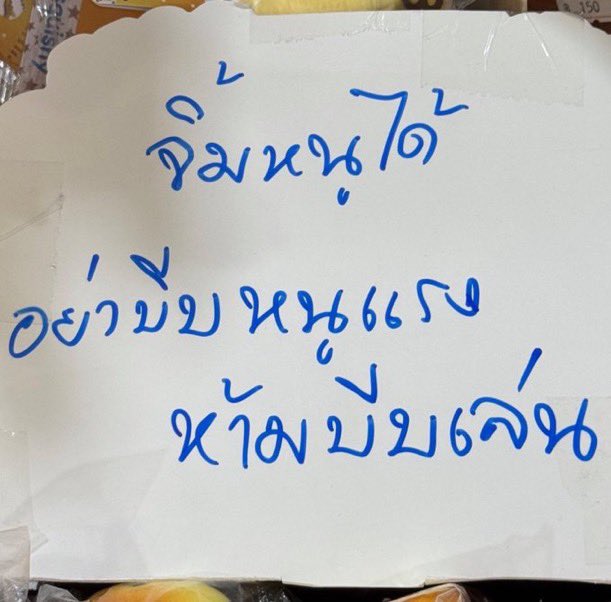 squishy
150
จิ้มหนูได้
อย่าบีบหนูแรง
ห้ามบีบเล่น